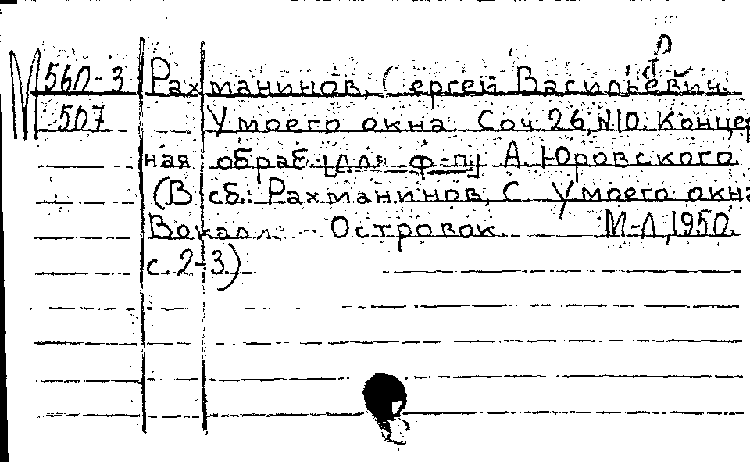 М 560-3 Рахманинов, Сергей Васильевич.
507 У моего окна. Соч. 26, №10. Концер
ная обраб. [для ф-п.] А. Юровского
(В сб.: Рахманинов, С. У моего окна
Вокализ. Островок. М-Л, 1950.
с. 2-3.)